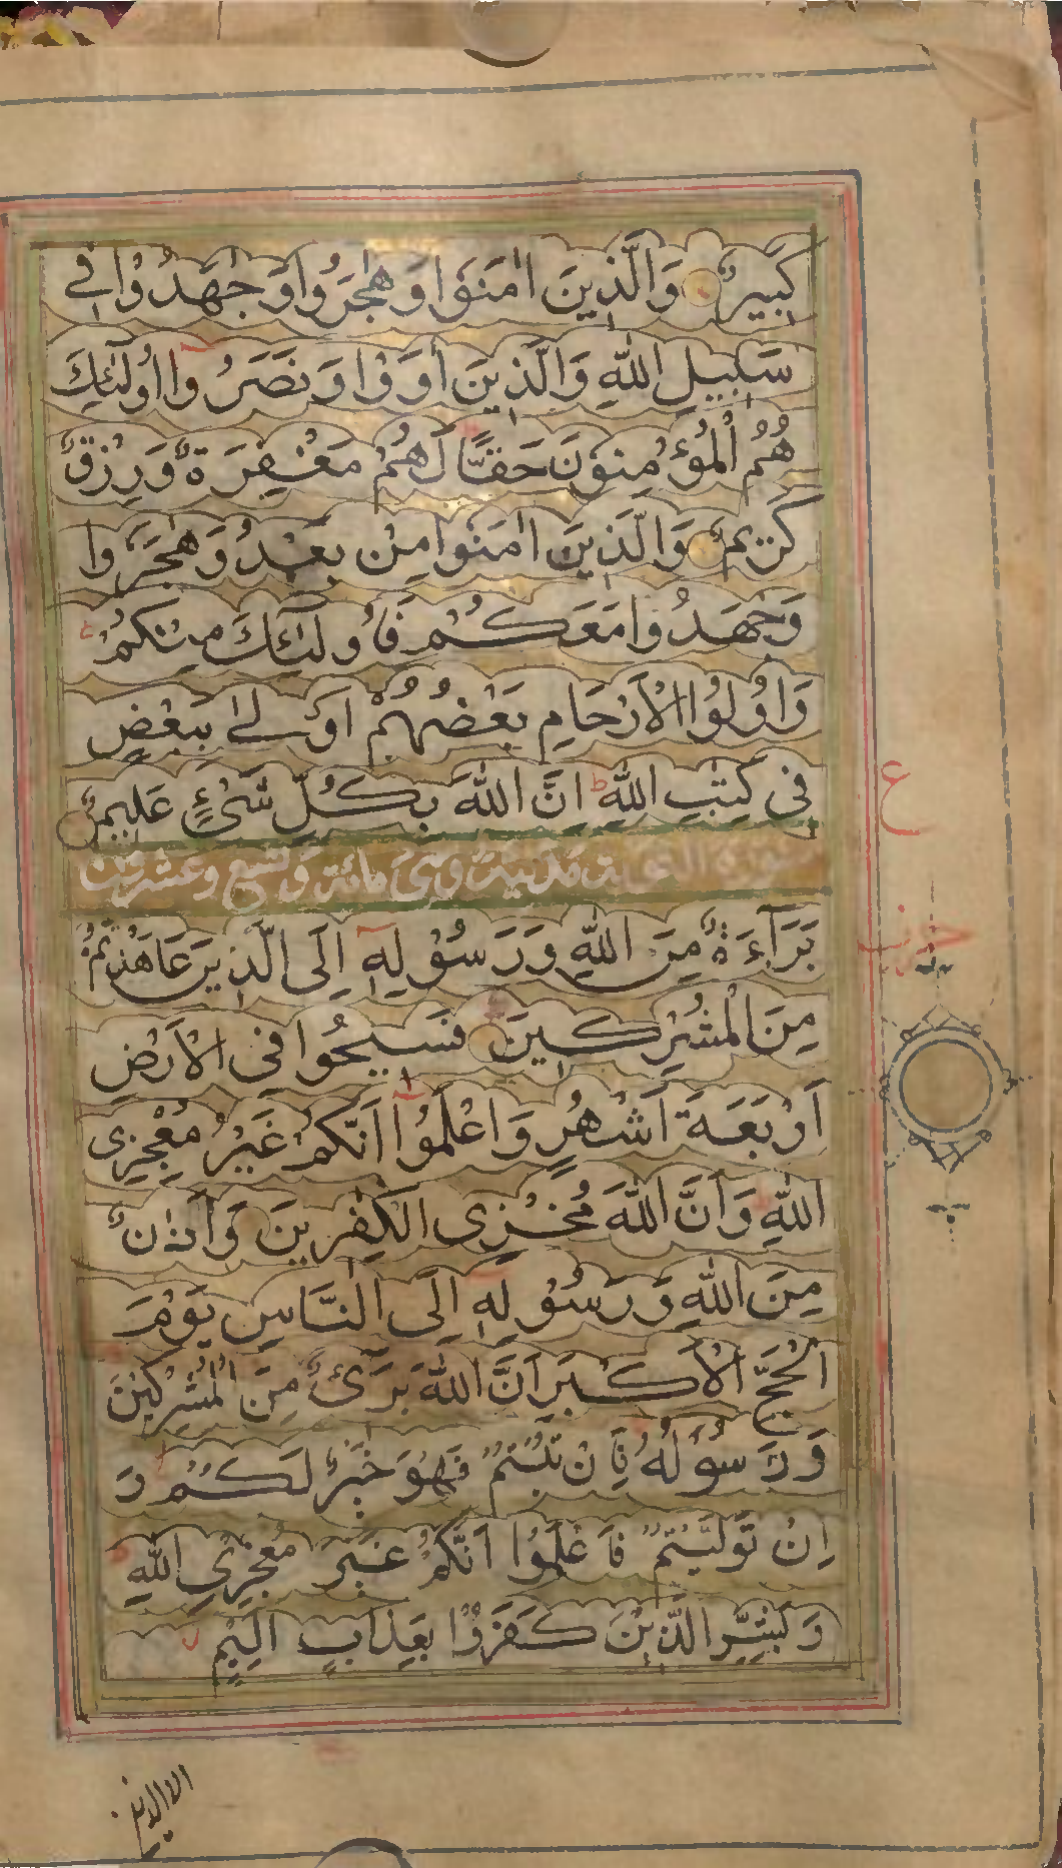 كَبِيرٌ وَالَّذِينَ اٰمَنُوْا وَهٰجَرُوا وَجٰهَدُوْا فِي
سَبِيلِ اللّٰهِ وَالَّذِينَ اٰوَوْا وَنَصَرُوا اُولٰئِكَ
هُمُ الْمُؤْمِنُوْنَ حَقًّا لَهُمْ مَغْفِرَةٌ وَرِزْقٌ
كَرِيمٌ وَالَّذِينَ اٰمَنُوا مِنْ بَعْدُ وَهٰجَرُوا
وَجٰهَدُوا مَعَكُمْ فَاُولٰئِكَ مِنْكُمْ
وَاُولُوا الْاَرْحَامِ بَعْضُهُمْ اَوْلٰى بِبَعْضٍ
فِى كِتٰبِ اللّٰهِ ط اِنَّ اللّٰهَ بِكُلِّ شَىْءٍ عَلِيمٌ
سورة التوبة مدنية وهى مائة وتسع وعشرون
بَرَآءَةٌ مِنَ اللّٰهِ وَرَسُوْلِهٖ اِلَى الَّذِينَ عَاهَدْتُمْ
مِنَ الْمُشْرِكِينَ فَسِيحُوا فِى الْاَرْضِ
اَرْبَعَةَ اَشْهُرٍ وَاعْلَمُوْٓا اَنَّكُمْ غَيْرُ مُعْجِزِى
اللّٰهِ وَاَنَّ اللّٰهَ مُخْزِى الْكٰفِرِينَ وَاَذَانٌ
مِنَ اللّٰهِ وَرَسُوْلِهٖ اِلَى النَّاسِ يَوْمَ
الْحَجِّ الْاَكْبَرِ اَنَّ اللّٰهَ بَرِىءٌ مِنَ الْمُشْرِكِيْنَ
وَرَسُوْلُهُ فَاِنْ تُبْتُمْ فَهُوَ خَيْرٌ لَكُمْ وَ
اِنْ تَوَلَّيْتُمْ فَاعْلَمُوْا اَنَّكُمْ غَيْرُ مُعْجِزِي اللّٰهِ
وَبَشِّرِ الَّذِيْنَ كَفَرُوْا بِعَذَابٍ اَلِيْمٍ
ع
الا الذين